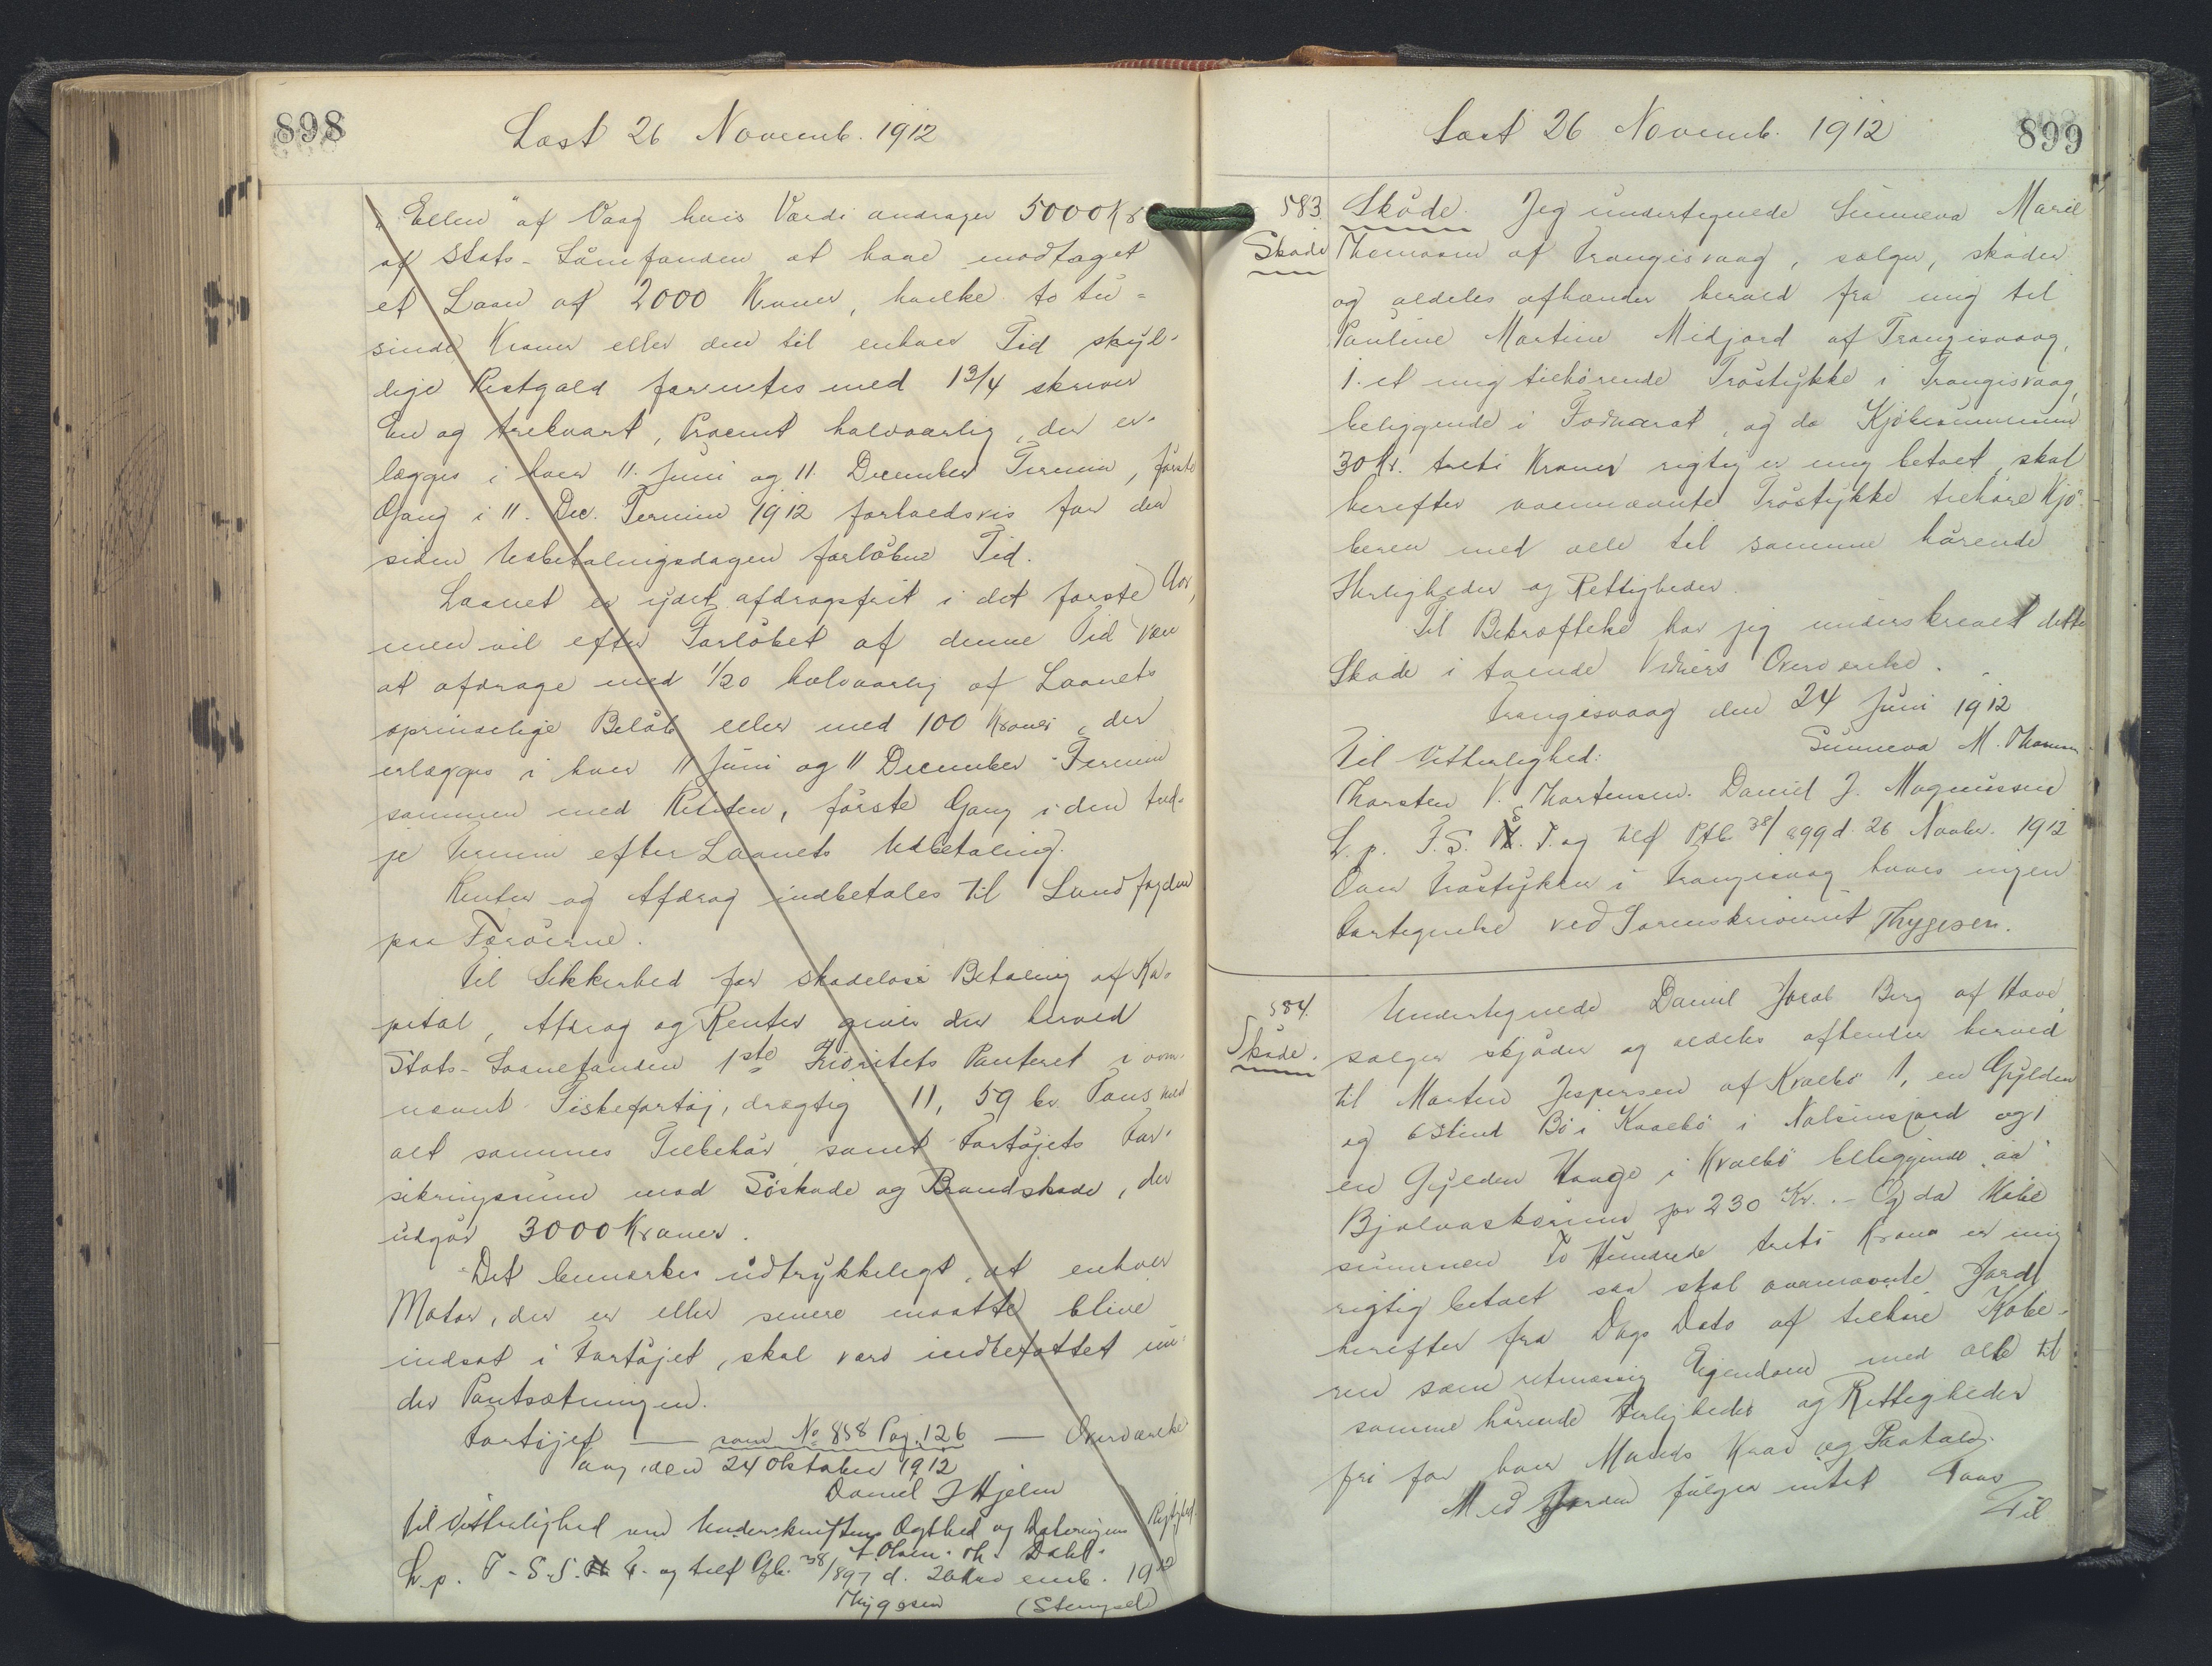 898
Læst 26 Novemb. 1912
"Ellen" af Vaag hvis Værdi andrager 5000 Kr
af Stats-Laanefonden at have modtaget
et Laan af 2000 Kroner, hvilke to tu-
sinde Kroner eller den til enhver Tid skyl-
dige Restgæld forrentes med 1 3/4 skriver
En og trekvart, Procent halvaarlig, der er-
lægges i hver 11. Juni og 11. December Termin, første
Gang i 11. Dec. Termin 1912 forholdsvis for den
siden Udbetalingsdagen forløbne Tid.
Laanet er ydet afdragsfrit i det første Aar,
men vil efter Forløbet af denne Tid være
at afdrage med 1/20 halvaarlig af Laanets
oprindelige Beløb eller med 100 Kroner, der
erlægges i hver 11 Juni og 11 December Termin
sammen med Renten, første Gang i den tred-
je Termin efter Laanets Udbetaling.
Renter og Afdrag indbetales til Landfogden
paa Færøerne.
Til Sikkerhed for skadesløs Betaling af Ka-
pital, Afdrag og Renter giver der herved
Stats-Laanefonden 1ste Prioritets Panteret i oven-
nævnt Fiskefartøj, drægtig 11,59 br. Tons med
alt sammes Tilbehør samt Fartøjets For-
sikringssum mod Søskade og Brandskade, der
udgør 3000 Kroner.
Det bemærkes udtrykkeligt, at enhver
Motor, der er eller senere maatte blive
indsat i Fartøjet, skal være indbefattet un-
der Pantsætningen.
Fartøjet — som No 858 Pag. 126 — Overværelse
Vaag, den 24 Oktober 1912
Daniel J Hjelm
Til Vitterlighed om Underskriftens Ægthed og Dateringens Rigtighed.
J. Olsen. Dahl.
L. p. F. S. S. T. og tilf Pb. 38/897 d. 26 Novemb. 1912
Thygesen (Stempel)
Læst 26 Novemb. 1912
899
583. Skøde. Jeg undertegnede Sunneva Marie
Skøde Thomsen af Trangisvaag, sælger, skøder
og aldeles afhænder herved fra mig til
Pauline Martine Midjord af Trangisvaag,
1. et mig tilhørende Trøstykke i Trangisvaag,
beliggende i, og da Kjøbesummen
30 Kr. treti Kroner rigtig er mig betalt, skal
herefter ovennævnte Trøstykke tilhøre Kjø-
beren med alle til samme hørende
Herligheder og Rettigheder.
Til Bekræftelse har jeg underskrevet dette
Skøde i toende Vidners Overværelse.
Trangisvaag den 24 Juni 1912
Sunneva M. Thomsen
Til Vitterlighed:
Thorsten V. Thortensen. Daniel J. Magnussen
L. p. F. S. S. T. og tilf Ptb 38/899 d. 26 Novbr. 1912
Over Trøstykker i Trangisvaag haves ingen
Fortegnelse ved Sorenskriveriet Thygesen.
584. Undertegnede Daniel Jacob Berg af Hove
Skøde. sælger skjøder og aldeles afhender herved
til Morten Jespersen af Kvalbø 1, en Gylden
og 6 Skind Bø i Kvalbø i Nolsinsjord og 1
en Gylden Hauge i Kvalbø beliggende "aa
" for 230 Kr. - Og da Købe
summen To Hundrede treti Krone er mig
rigtig betalt saa skal ovennævnte Jord
herefter fra Dags Dato af tilhøre Købe-
ren som retmæssig Ejendom med alle til
samme hørende Herligheder og Rettigheder
fri for hver Mands Krav og Paatale.
Med Jorden følger intet Faar
Til